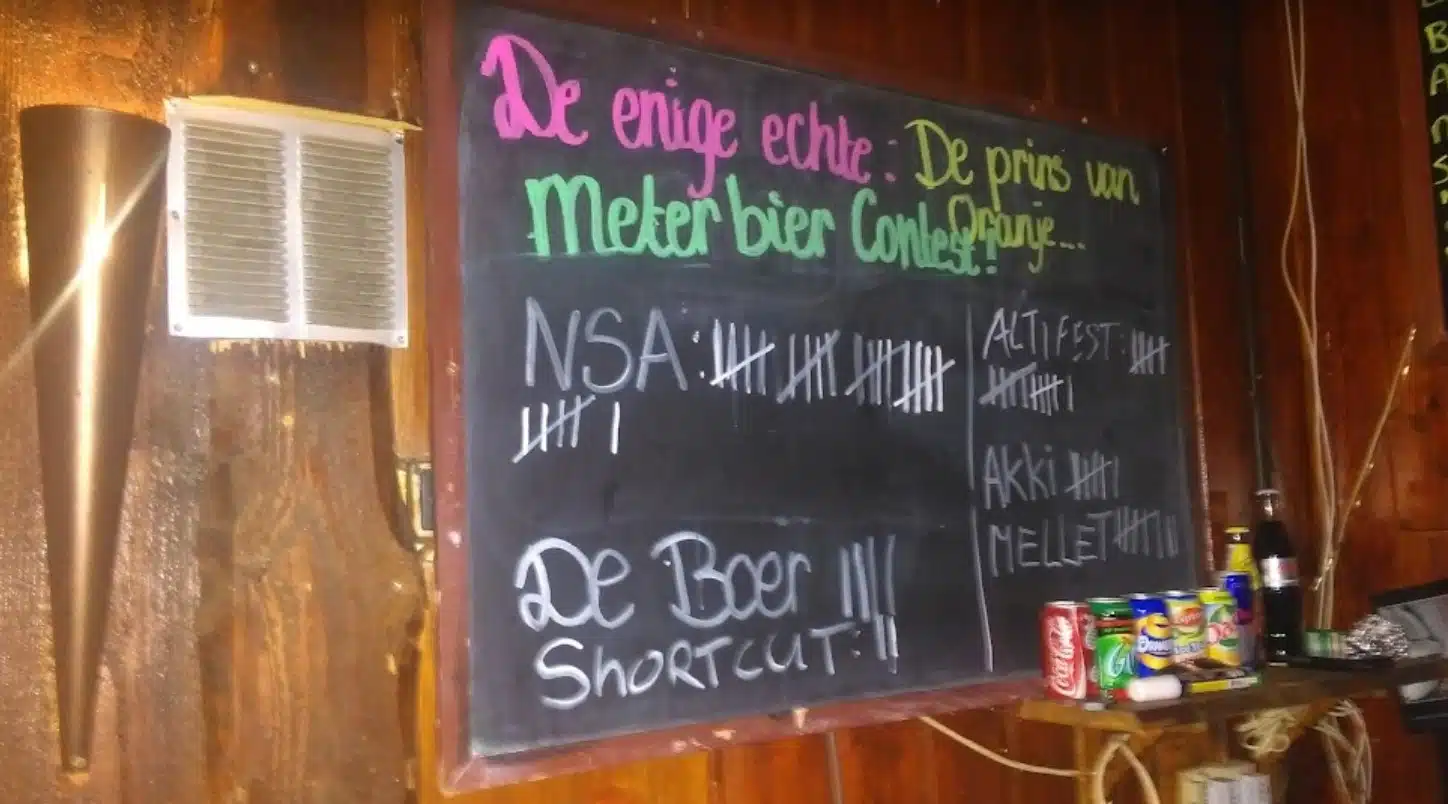 De enige echte: De prins van
Meter bier Contest! Oranje...
NSA:
De Boer
SHORTCUT:
ALTIFEST:
AKKi
MELLET
Coca-Cola
B
A